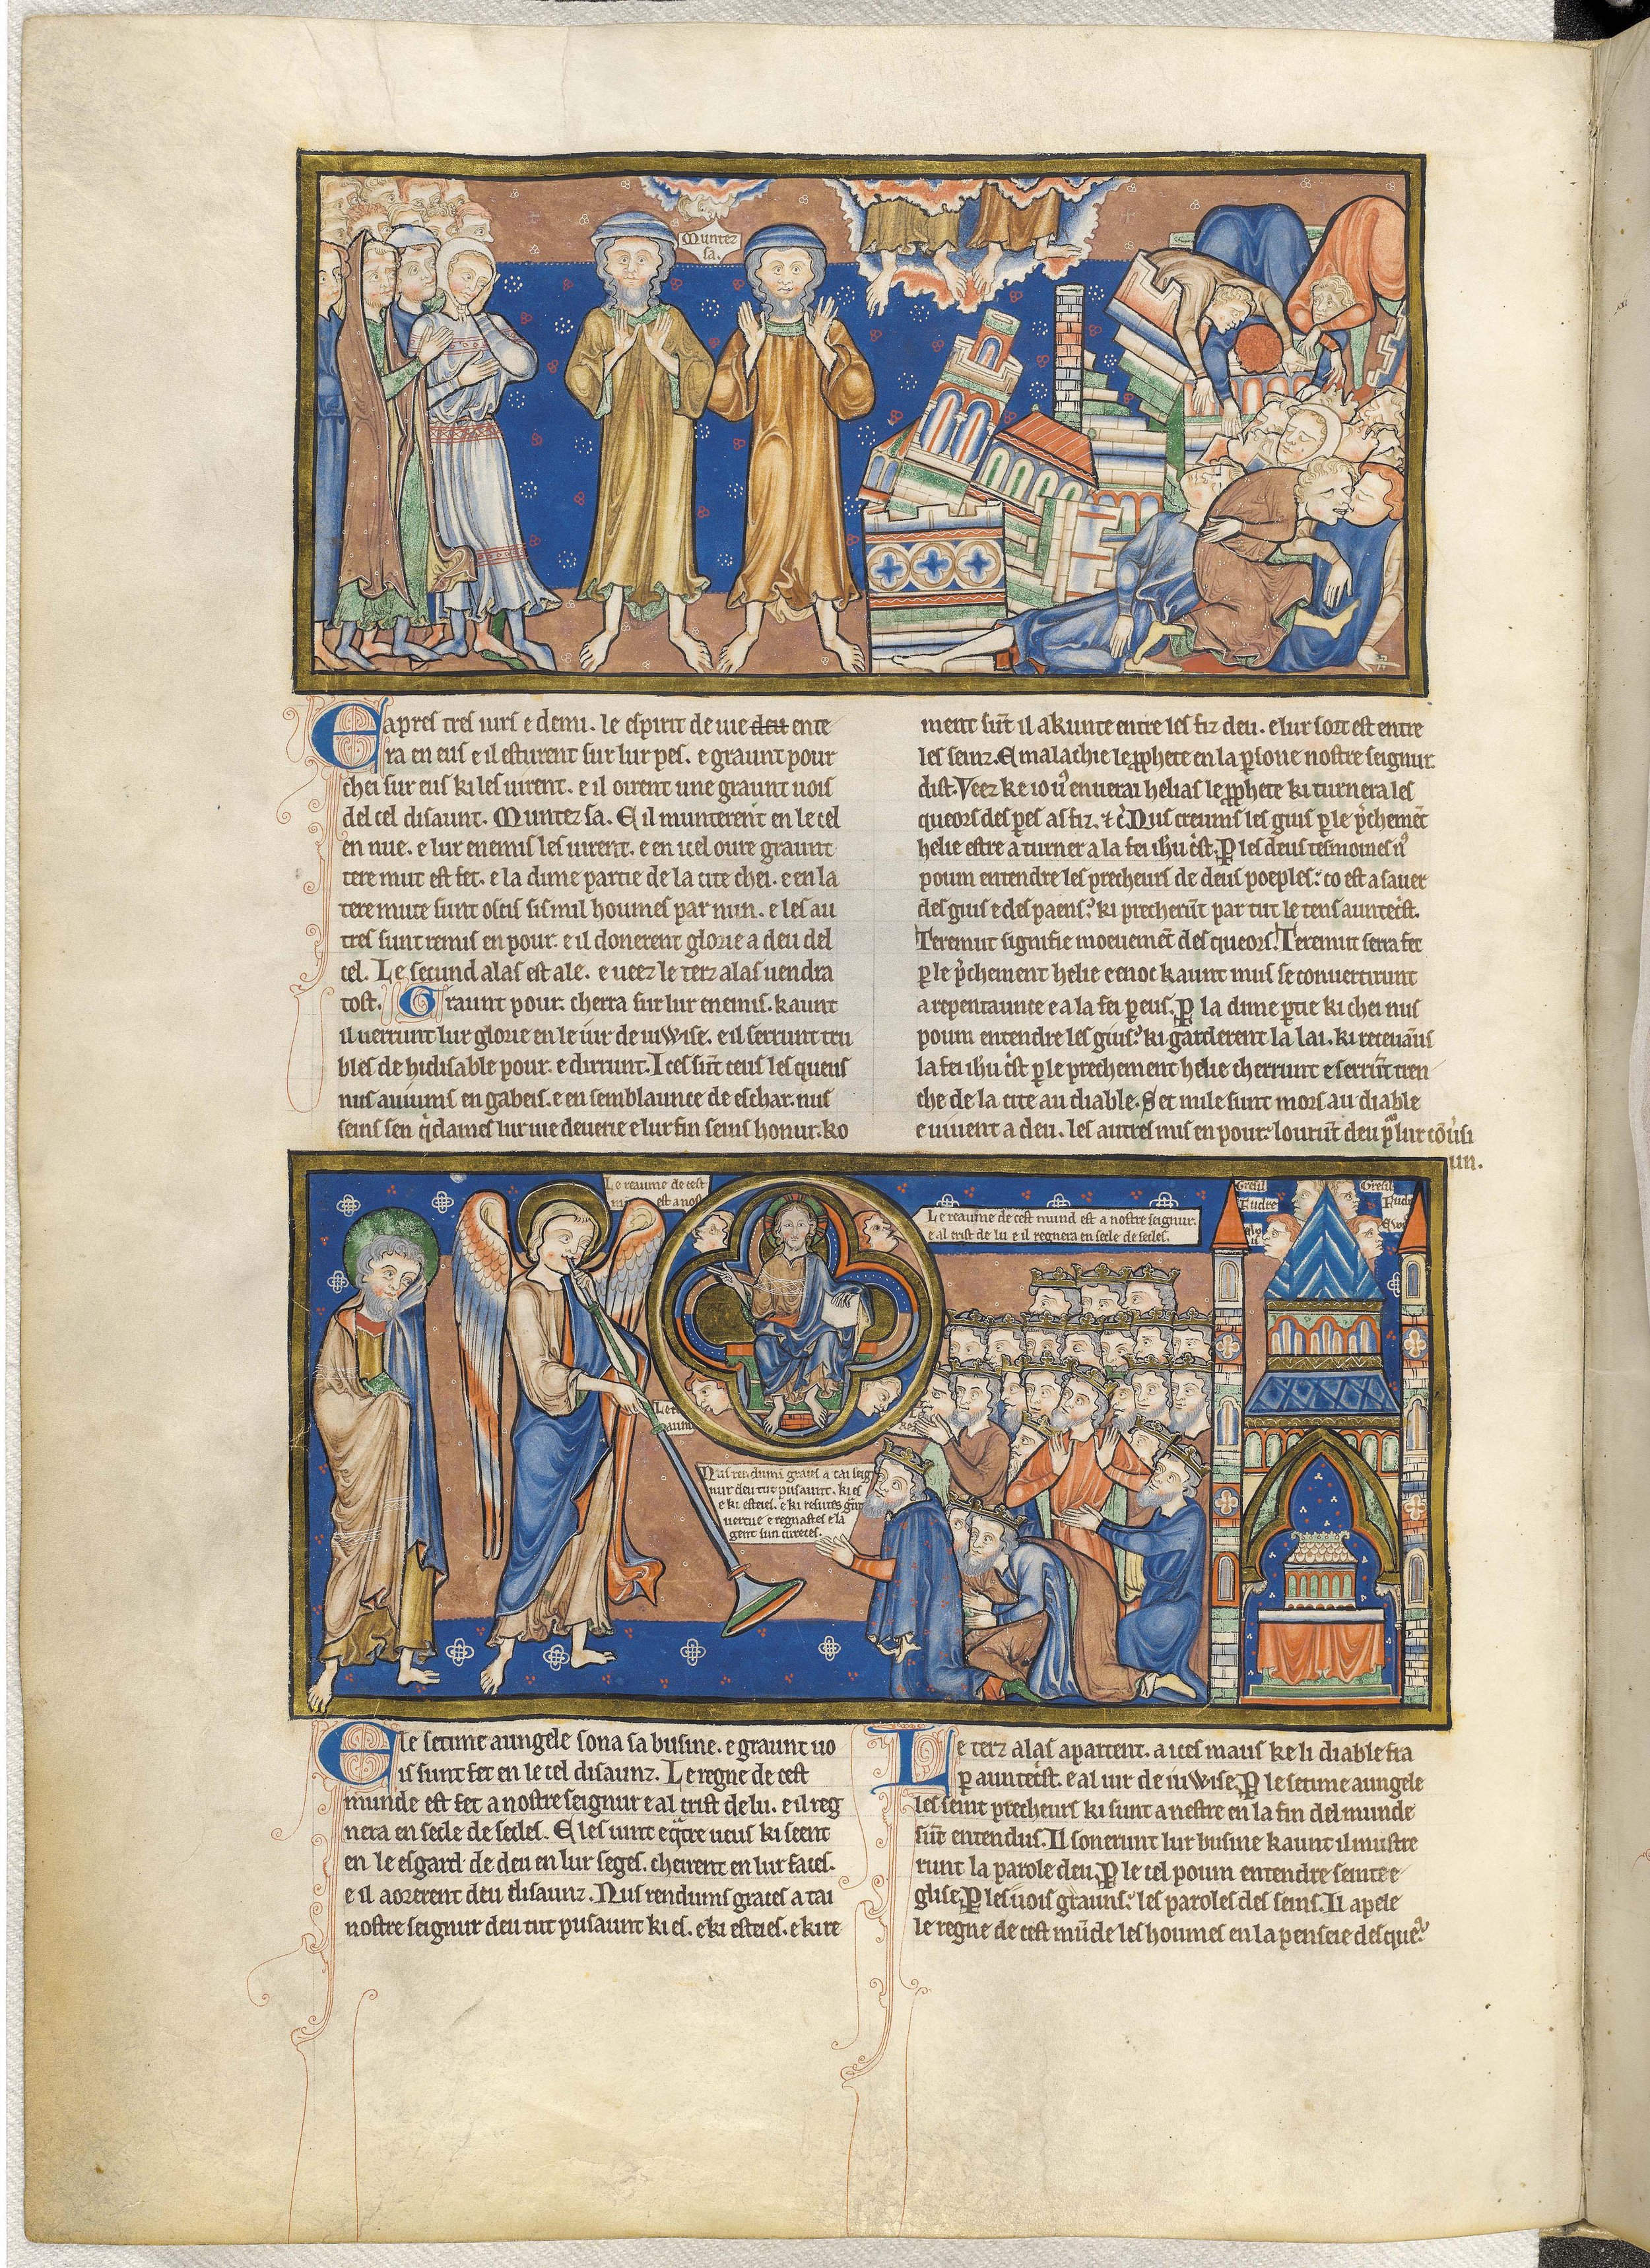 Muntez
sa.
E apres tres iurs e demi. le espirit de uie deu ente
ra en eus e il esturent sur lur pes. e graunt pour
chei sur eus ki les uirent. e il oirent une graunt uois
del cel disaunt. Muntez sa. E il munterent en le cel
en nue. e lur enemis les uirent. e en icel oure graunt
tere mut est fet. e la dime partie de la cite chei. e en la
tere mute sunt oscis sis mil houmes par nun. e les au
tres sunt remis en pour. e il donerent glorie a deu del
cel. Le secund alas est ale. e ueez le terz alas uendra
tost. Graunt pour cherra sur lur enemis. kaunt
il uerrunt lur glorie en le iur de iuwise. e il serrunt tru
bles de hidisable pour. e dirrunt. Ices sūt ceus les queus
nus auiums en gabeis. e en semblaunce de eschar. nus
seins sen q̇dames lur uie deuerie e lur fin seins honur. ko
ment sūt il akunte entre les fiz deu. e lur sort est entre
les seinz. E malachie le ꝓphete en la ꝑsone nostre seignur
dist. Veez ke io uꝰ enuerai helias le ꝓphete ki turnera les
queors des pes as fiz. ⁊ c̄. Nus creums les guis ꝑ le p̄chemēt
helie estre a turner a la fei ihu c̄st. Ꝑ les deus tesmoines nꝰ
poum entendre les precheurs de deus poeples. co est a sauer
des guis e des paens. ki precherūt par tut le tens auntec̄st.
Teremut signifie moeuemēt des queors. Teremut serra fet
ꝑ le p̄chement helie e enoc kaunt mus se conuertirunt
a repentaunce e a la fei ꝑ eus. Ꝑ la dime ꝑtie ki chei nus
poum entendre les guis. ki garderent la lai. ki receuāns
la fei ihu c̄st ꝑ le prechement helie cherrunt e serrūt tren
che de la cite au diable. Set mile sunt mors au diable
e uiuent a deu. les autres mis en pour. lourūt deu ꝑ lur cōūsi
un.
Le reaume de cest
est a nost
Le reaume de cest mund est a nostre seignur.
e al crist de lu e il regnera en secle de secles.
Gresil
Fudre
Gresil
Nus rendums graces a tai seig
nur deu tut pusaunt. ki es
e ki esteies. e ki resutes grāt
uertue e regnastes e la
gent sun cureces.
E le setime aungele sona sa busine. e graunt uo
is sunt fet en le cel disaunz. Le regne de cest
munde est fet a nostre seignur e al crist de lu. e il reg
nera en secle de secles. E les uint e q̄tre ueus ki seent
en le esgard de deu en lur seges. cheirent en lur faces.
e il aorerent deu disaunz. Nus rendums graces a tai
nostre seignur deu tut pusaunt ki es. e ki esteies. e ki re
Le terz alas apartent. a ices maus ke li diable fra
ꝑ auntec̄st. e al iur de iuwise. Ꝑ le setime aungele
les seint precheurs ki sunt a nestre en la fin del munde
sūt entendus. Il sonerunt lur busine kaunt il mustre
runt la parole deu. Ꝑ le cel poum entendre seinte e
glise. Ꝑ les uois grauns. les paroles des seins. Il apele
le regne de cest mūde les houmes en la penseie des que